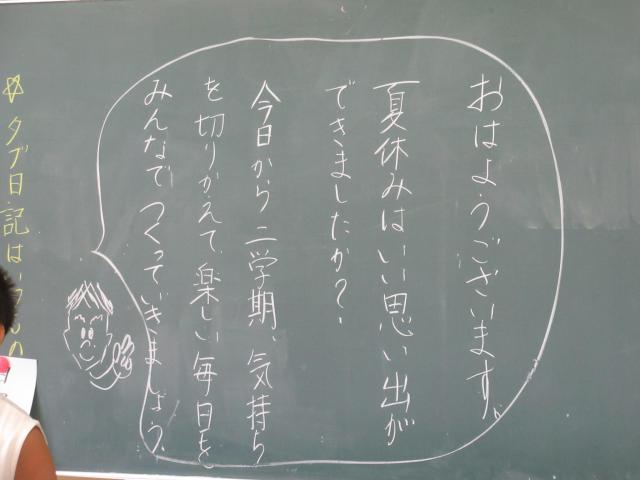 おはようございます。
夏休みはいい思い出が
できましたか？
今日から二学期、気持ち
を切りかえて楽しい毎日を
みんなでつくっていきましょう。
☆タブ日記は